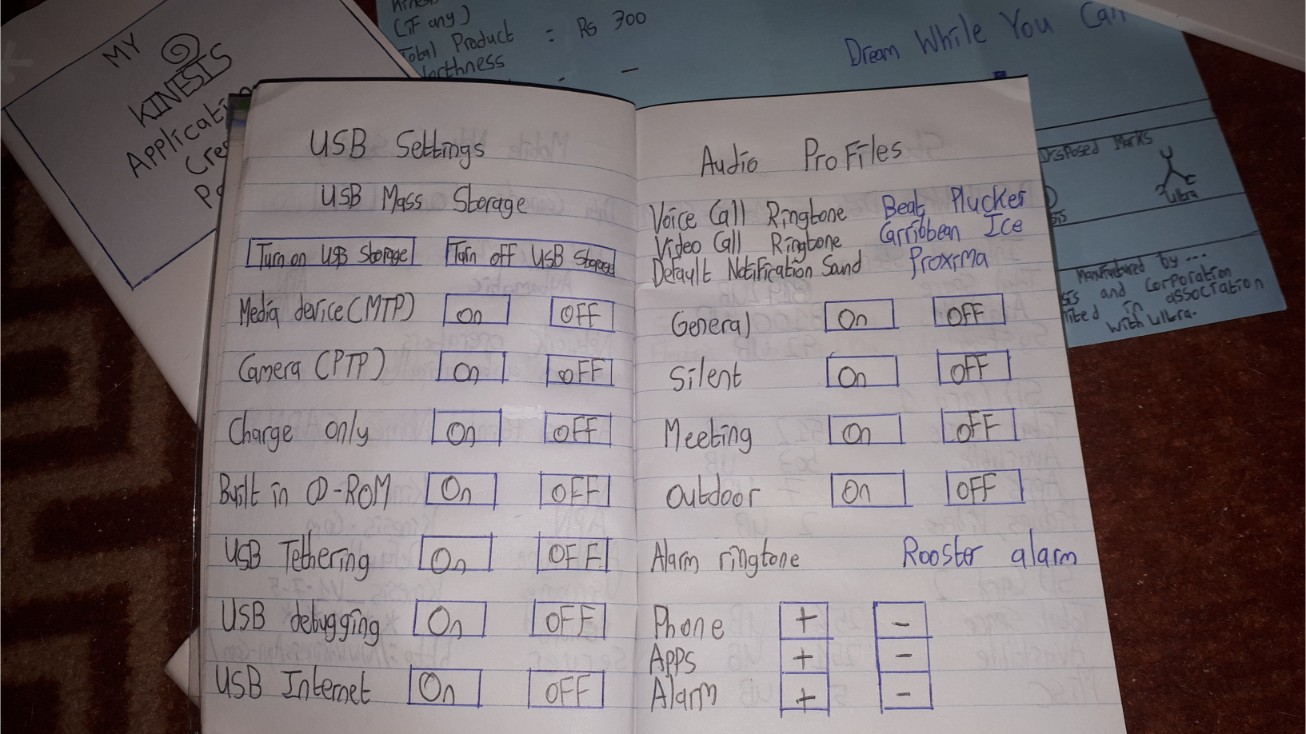 MY
KINESIS
(IF any)
Total Product : Rs 300
Dream While You Can
USB Settings
USB Mass Storage
Turn on USB Storage Turn off USB Storage
Media device (MTP) On OFF
Camera (PTP) On OFF
Charge only On OFF
Built in CD-ROM On OFF
USB Tethering On OFF
USB debugging On OFF
USB Internet On OFF
Audio ProFiles
Voice Call Ringtone Beat Plucker
Video Call Ringtone Carribbean Ice
Default Notification Sound Proxima
General On OFF
Silent On OFF
Meeting On OFF
Outdoor On OFF
Alarm ringtone Rooster alarm
Phone + -
Apps + -
Alarm + -
Marks
Ultra
Manufactured by ...
and Corporation
in association
with Ultra.